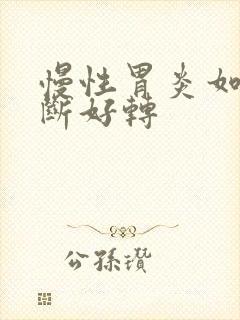 慢性胃炎如
斷好轉
公孫瓚